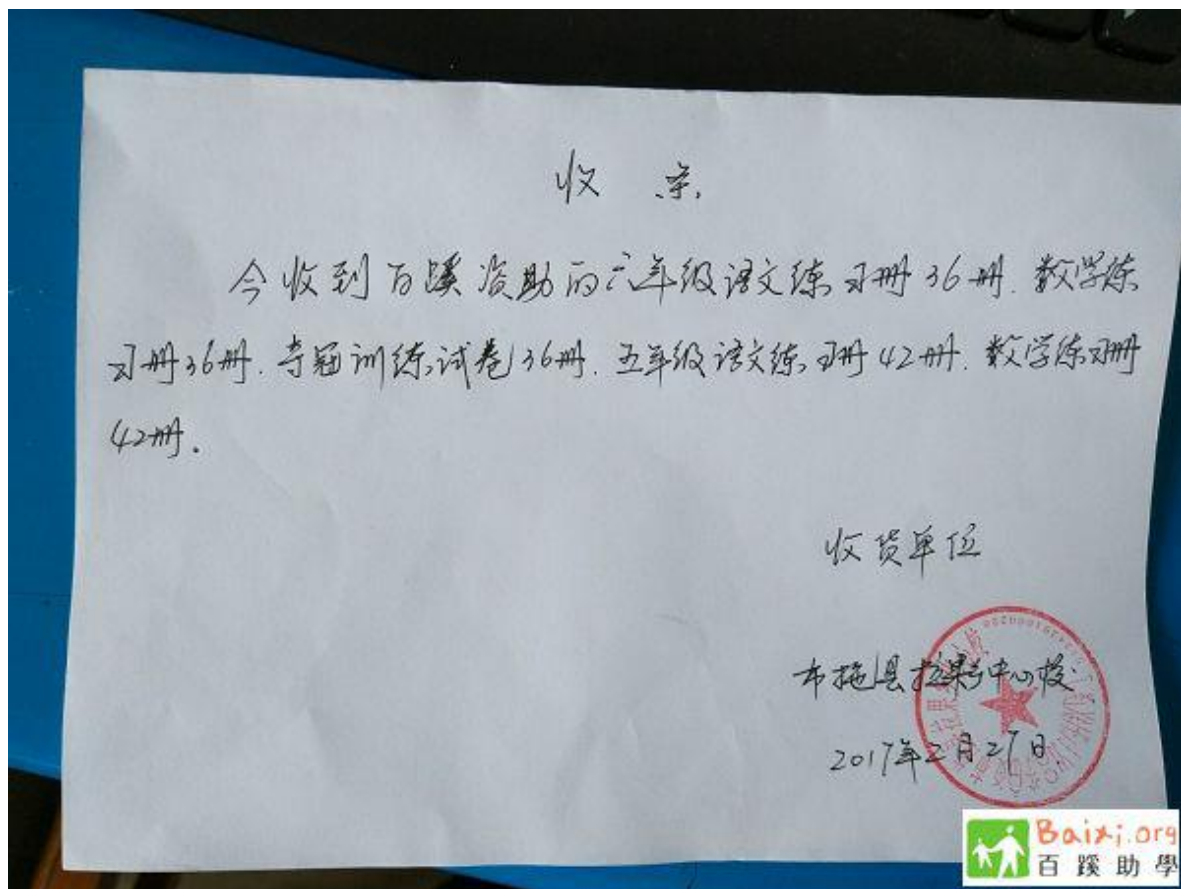 收 条
今收到百蹊资助的六年级语文练习册36册.数学练
习册36册.夺冠训练试卷36册.五年级语文练习册42册.数学练习册
42册.
收货单位
布拖县拉果乡中心校
2017年2月27日
Baixi.org
百蹊助學